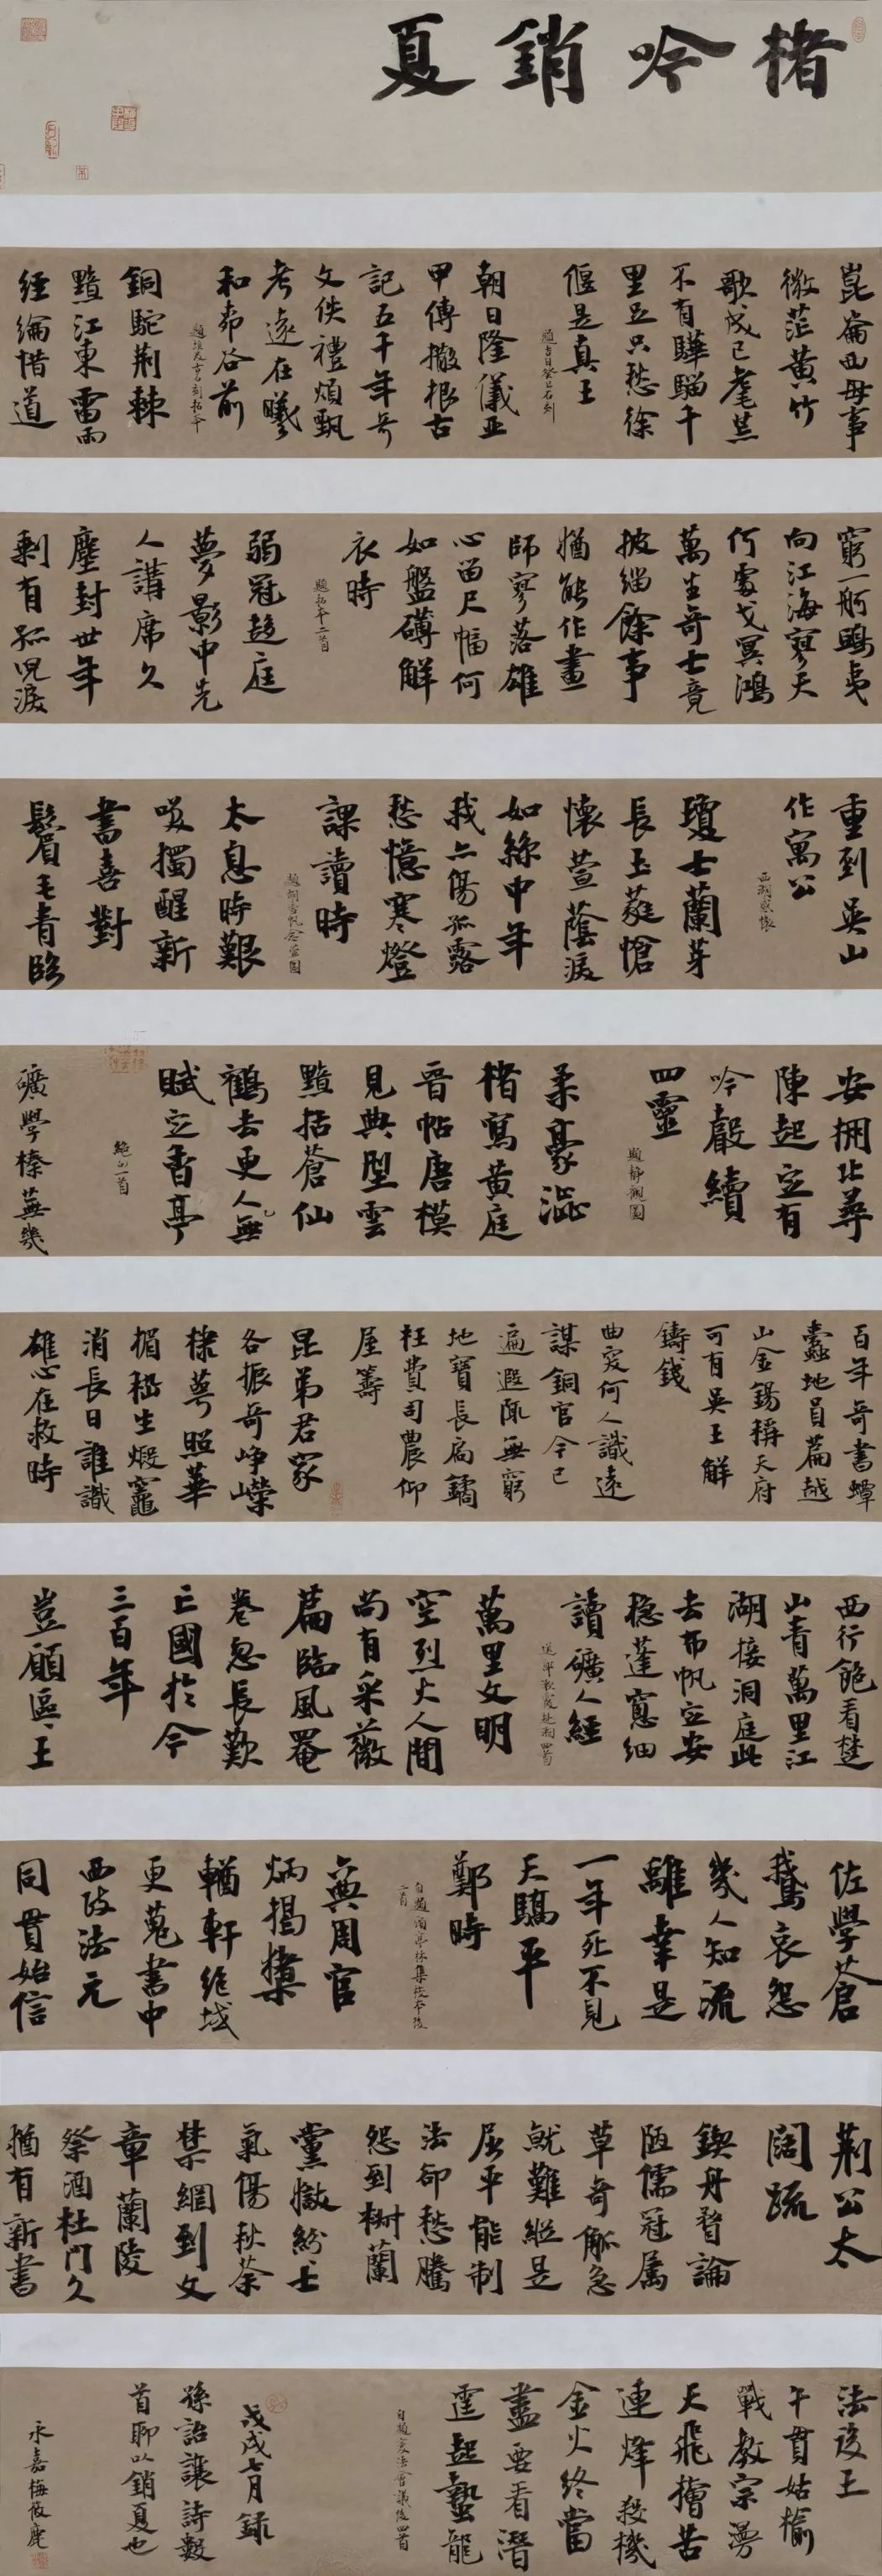 楮吟銷夏
崑崙西母事
微茫黃竹
歌成已耄荒
不有驊騮千
里足只愁徐
偃是真王
題吉日癸巳石刻
朝日隆儀亚
甲傳撒根古
記五千年奇
文佚禮煩甄
考遠在曦
和希谷前
銅駝荆棘
黯江東雷雨
經綸惜道
窮一舸鴟夷
向江海寥天
何處弋冥鴻
萬生奇士竟
披緇餘事
猶能作畫
師寥落雄
心留尺幅何
如盤礴解
衣時
弱冠趍庭
夢影中先
人講席久
塵封卅年
剩有孤児淚
重到吳山
作寓公
西湖感懷
瓊士蘭芽
長玉蕤愴
懷萱蔭淚
如絲中年
我亦傷孤露
愁憶寒燈
課讀時
太息時艱
唉獨醒新
書喜對
鬢眉毛青臨
安捆比尋
陳起定有
吟聲續
四靈
題靜觀圖
柔豪澁
楮寫黃庭
晉帖唐模
見典型雲
黯括蒼仙
鶴去更人無
賦定香亭
礦學榛蕪幾
百年奇書蟫
蠹地員篇越
山金錫稱天府
可有吳王解
鑄錢
曲突何人識遠
謀銅官今已
遍遐陬無窮
地寶長扃鐍
枉費司農仰
屋籌
昆弟君家
各振奇崢嶸
棣萼照華
楣嵇生煅竈
消長日誰識
雄心在救時
西行飽看楚
山青萬里江
湖接洞庭此
去布帆定安
穏蓬窻細
讀礦人經
萬里文明
空烈火人間
尚有采薇
篇臨風罨
卷忽長歎
亡國於今
三百年
豈願區〻王
佐學蒼
鵞哀怨
幾人知流
離幸是
一年死不見
天驕平
鄭時
自題顧亭林集校本後
二首
六典周官
炳揭櫫
輶軒絕域
更蒐書中
西政法元
同貫始信
荆公太
闊疏
鍥舟瞀論
陋儒冠属
草奇觚急
就難縱是
屈平能制
法卻愁騰
怨到樹蘭
黨嶽紛〻士
氣傷秋荼
禁網到文
章蘭陵
祭酒杜門久
猶有新書
法後王
午貫姑榆
戰教宗漫
天飛撸苦
連烽殺機
金火終當
盡要看潛
霆起蟄龍
自題變法會議後四首
戊戌七月錄
孫詒讓詩數
首聊以銷夏也
永嘉梅筱庵